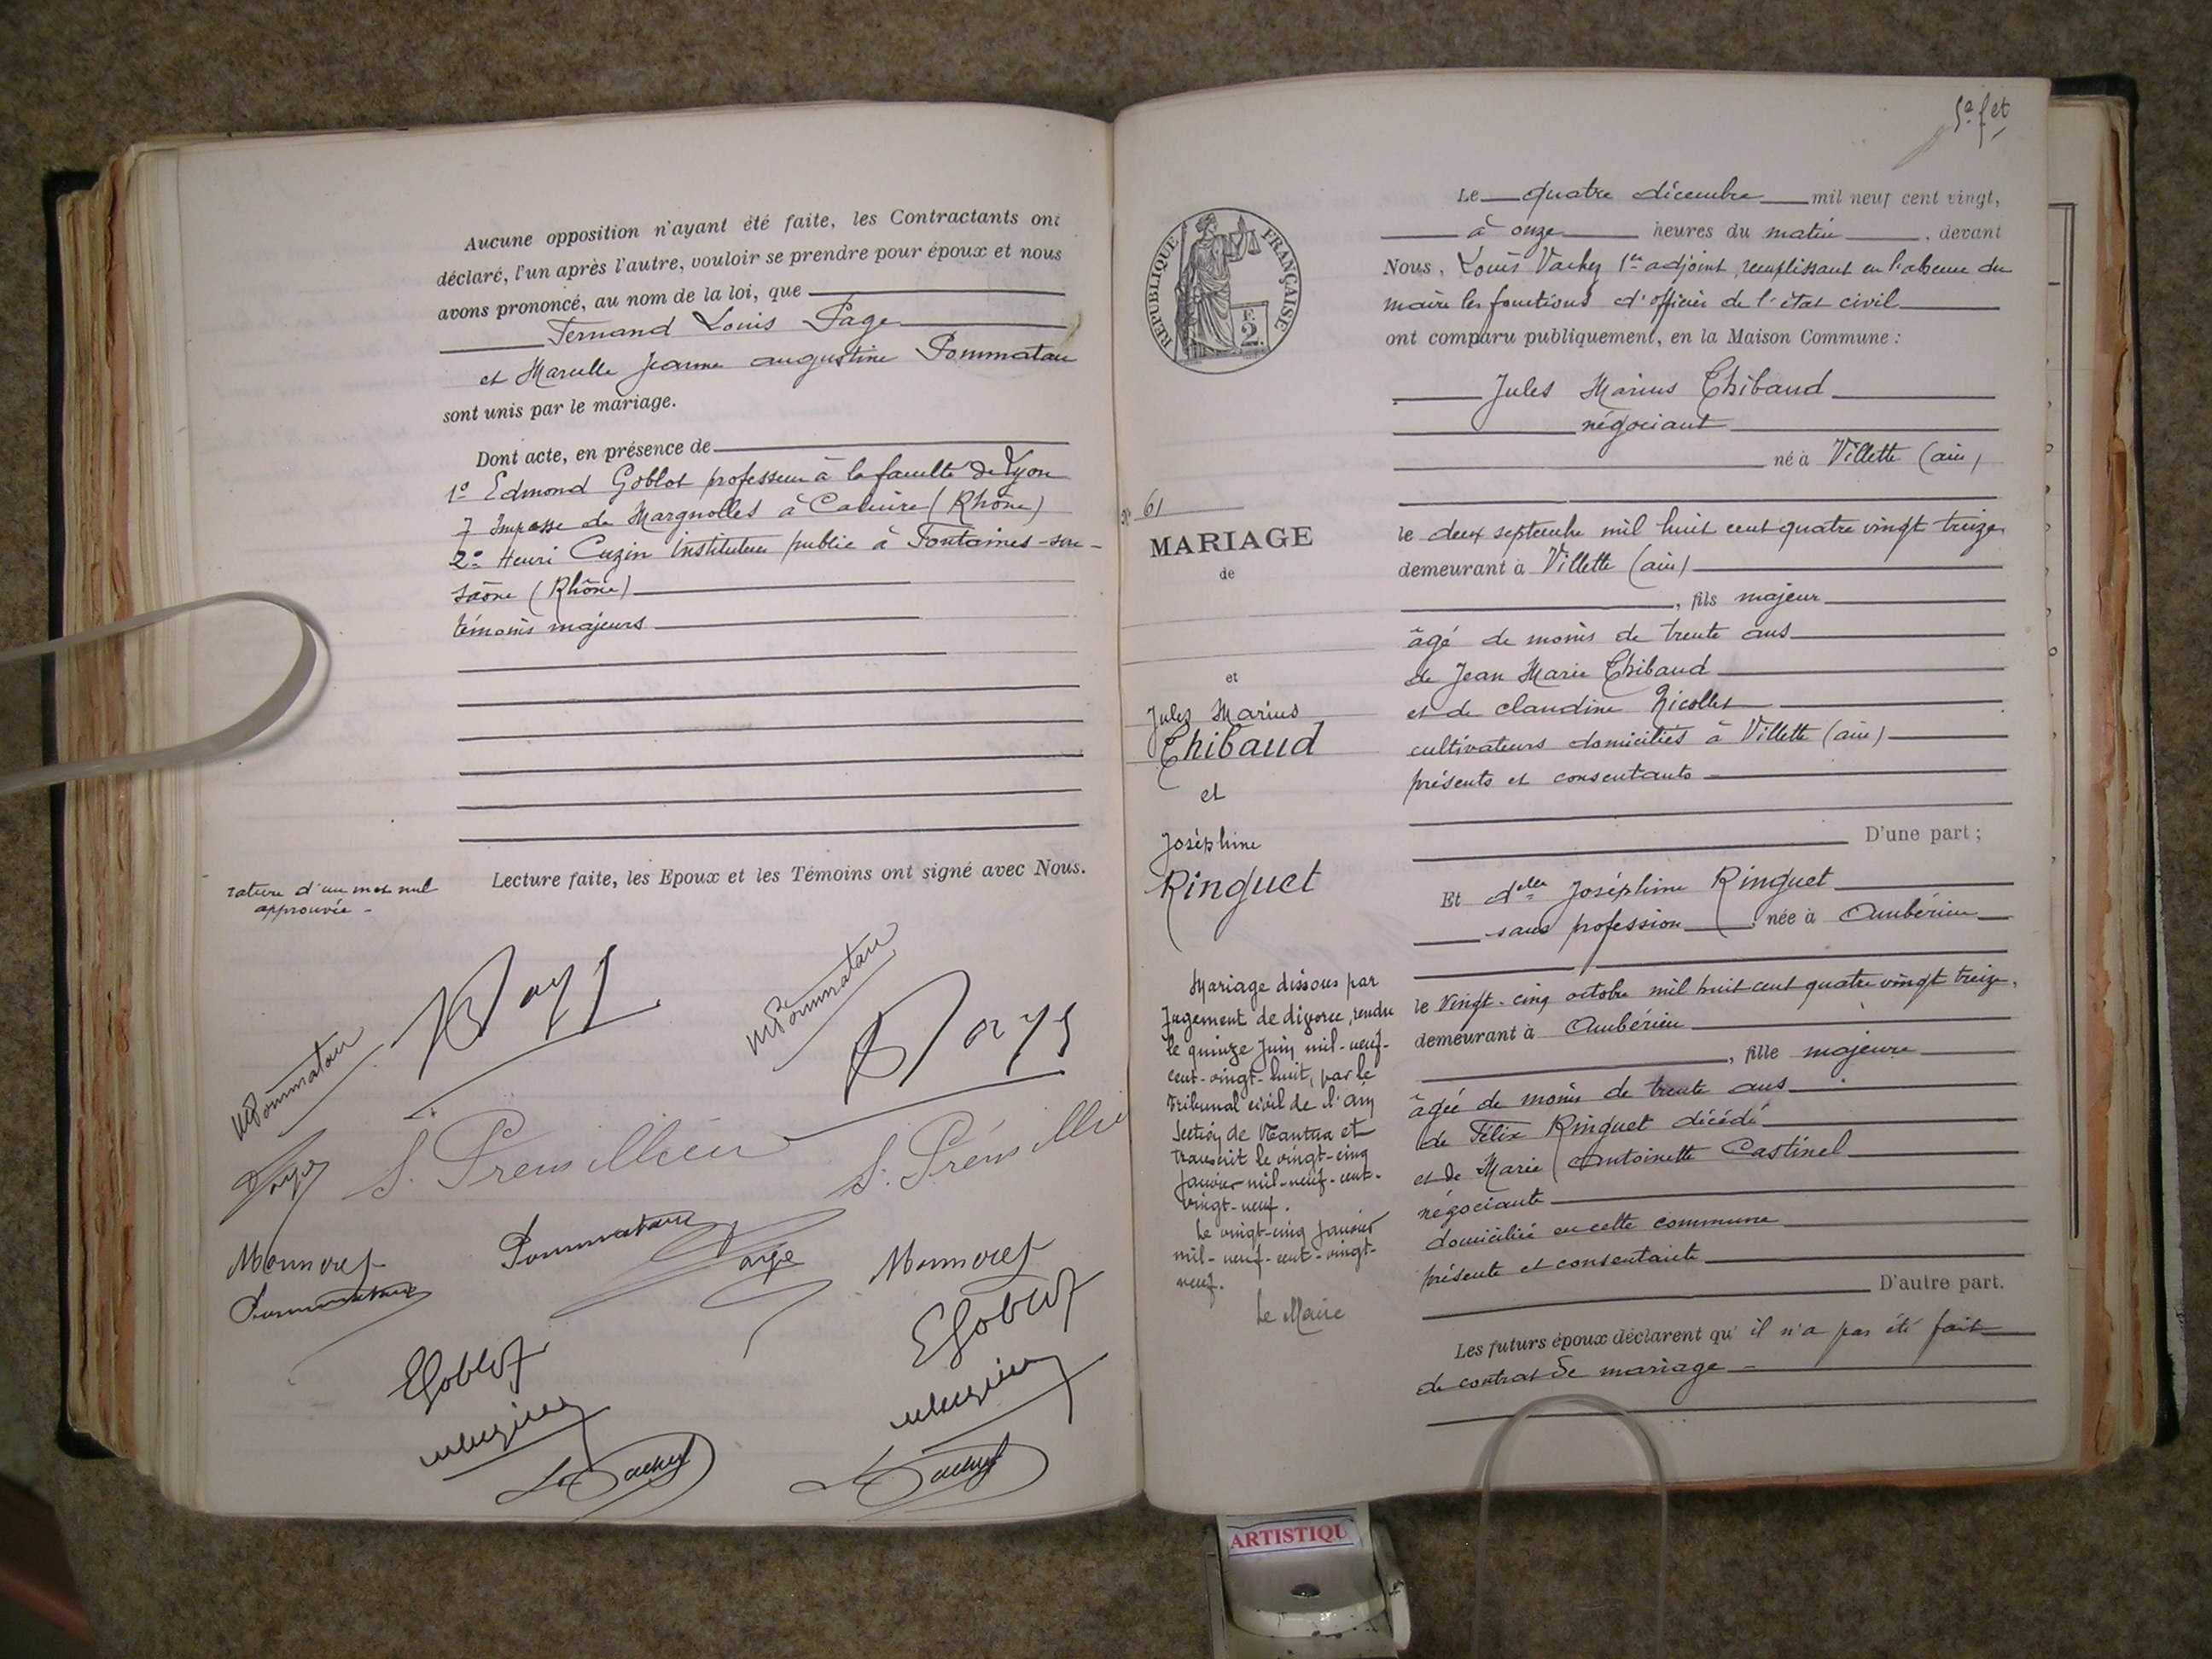 Aucune opposition n'ayant été faite, les Contractants ont
déclaré, l'un après l'autre, vouloir se prendre pour époux et nous
avons prononcé, au nom de la loi, que
Fernand Louis Page
et Marcelle Jeanne augustine Pommatau
sont unis par le mariage.
Dont acte, en présence de
1º Edmond Goblot professeur à la faculté de Lyon
7 Impasse de Margnolles à Caluire (Rhône)
2º Henri Cuzin Instituteur public à Fontaines-sur-
Saône (Rhône)
témoins majeurs
Lecture faite, les Epoux et les Témoins ont signé avec Nous.
rature d'un mot nul
approuvée -
MPommatau
Pommatau
Page
Monnoret
EGoblot
5e fet
REPUBLIQUE FRANÇAISE
F. 2.
Le quatre décembre mil neuf cent vingt,
à onze heures du matin, devant
Nous, Louis Vachez 1er adjoint, remplissant en l'absence du
maire les fonctions d'officier de l'état civil
ont comparu publiquement, en la Maison Commune :
Jules Marius Thibaud
négociant
né à Villette (ain)
le deux septembre mil huit cent quatre vingt treize
demeurant à Villette (ain)
, fils majeur
âgé de moins de trente ans
de Jean Marie Thibaud
et de claudine Nicollet
cultivateurs domiciliés à Villette (ain)
présents et consentants
D'une part ;
Et delle Joséphine Ringuet
sans profession, née à Ambérieu
le vingt-cinq octobre mil huit cent quatre vingt treize,
demeurant à Ambérieu
, fille majeure
âgée de moins de trente ans
de Félix Ringuet décédé
et de Marie Antoinette Castinel
négociante
domiciliée en cette commune
présente et consentante
D'autre part.
Les futurs époux déclarent qu'il n'a pas été fait
de contrat de mariage
Nº 61
MARIAGE
de
et
Jules Marius
Thibaud
et
Joséphine
Ringuet
Mariage dissous par
Jugement de divorce, rendu
le quinze Juin mil-neuf-
cent-vingt-huit, par le
Tribunal civil de l'Ain
Section de Nantua et
transcrit le vingt-cinq
Janvier mil-neuf-cent-
vingt-neuf.
Le vingt-cinq Janvier
mil-neuf-cent-vingt-
neuf.
Le Maire
ARTISTIQU